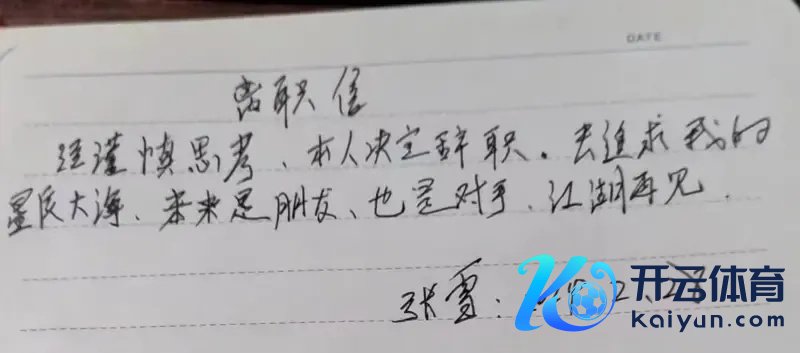 DATE
离职信
经谨慎思考、本人决定辞职。去追求我的
星辰大海、未来是朋友、也是对手、江湖再见.
张雪:
开云体育
kaiyun.com